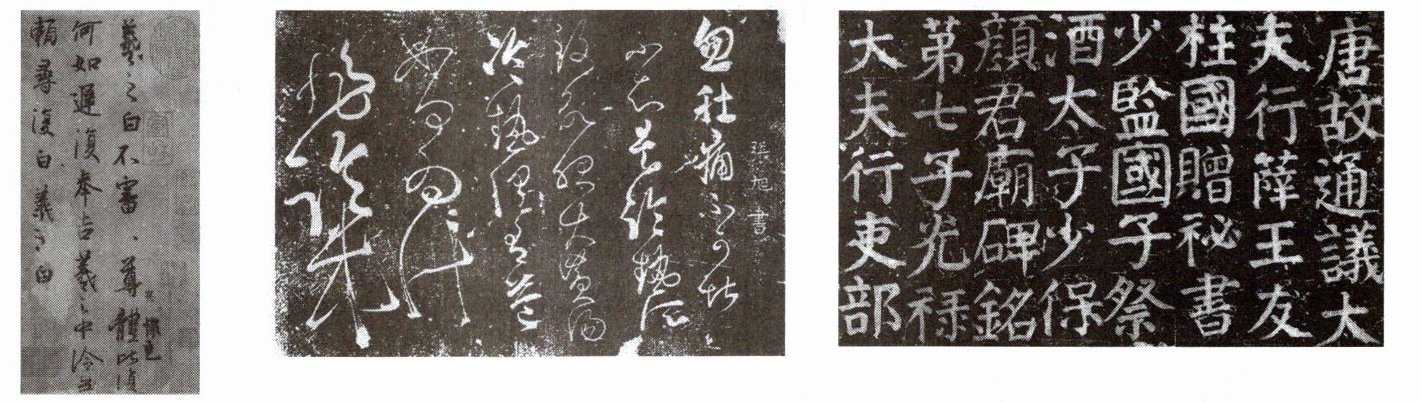 羲之白不審、尊體比復
何如遲復奉告羲之中冷無
賴尋復白羲之白
張旭書
忽肚痛不可堪
不知是冷熱所
致欲服大黃湯
冷熱俱有益
如何為計
唐故通議太
夫行薛王友
柱國贈祕書
少監國子祭
酒太子少保
顏君廟碑銘
第七子光祿
大夫行吏部